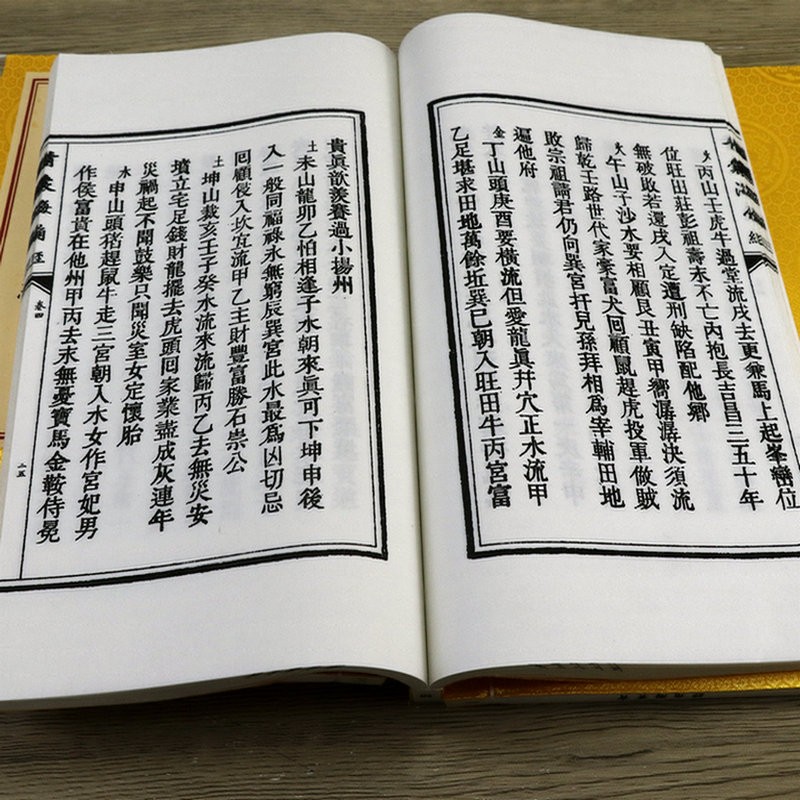 火丙山壬虎牛過堂流戌去更乘馬上起峯巒位
位旺出莊彭祖壽末不亡內抱長吉昌三五十年
無破敗若還戌入定遭刑缺陷配他鄉
火午山子沙水要相顧艮丑寅甲嚮潺潺決須流
歸乾壬路世代家豪富犬回顧鼠趕虎投軍做賊
敗宗祖請君仍向巽宮扦兒孫拜相為宰輔田地
遍他府
金丁山頭庚酉要橫流但愛龍眞幷穴正水流甲
乙足堪求田地萬餘坵巽巳朝入旺田牛丙宮富
貴眞歆羨賽過小揚州
土未山龍卯乙怕相逢子水朝來眞可下坤申後
入一般同福祿永無窮辰巽宮此水最為凶切忌
回顧侵入坎宜流甲乙主財豐富勝石崇公
土坤山栽亥壬子癸水流來流歸丙乙去無災安
墳立宅足錢財龍擺去虎頭回家業盡成灰連年
災禍起不聞鼓樂只聞災室女定懷胎
水申山頭猪趕鼠牛走三宮朝入水女作宮妃男
作侯富貴在他州甲丙去永無憂寶馬金鞍侍冕
卷四
二五